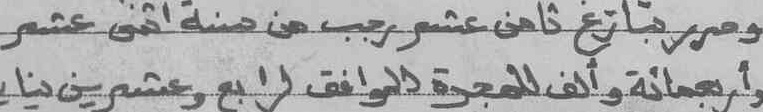 وحرر بتاريخ ثامن عشر رجب من سنة اثنى عشر
وأربعمائة وألف للهجرة الموافق لرابع وعشرين يناير